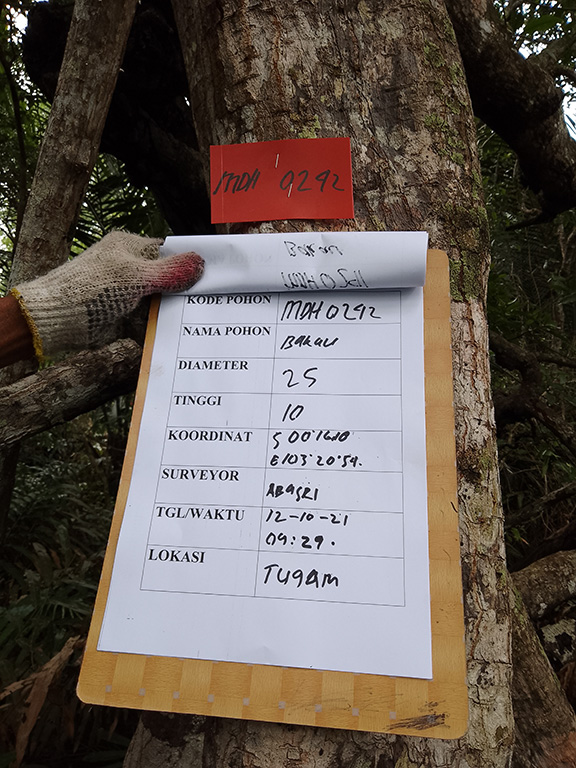 MDH 0292
Bakau
KODE POHON MDH 0292
NAMA POHON Bakau
DIAMETER 25
TINGGI 10
KOORDINAT S 00'16.10
E103'20'54.
SURVEYOR ABASRI
TGL/WAKTU 12-10-21
09:29.
LOKASI Tugam